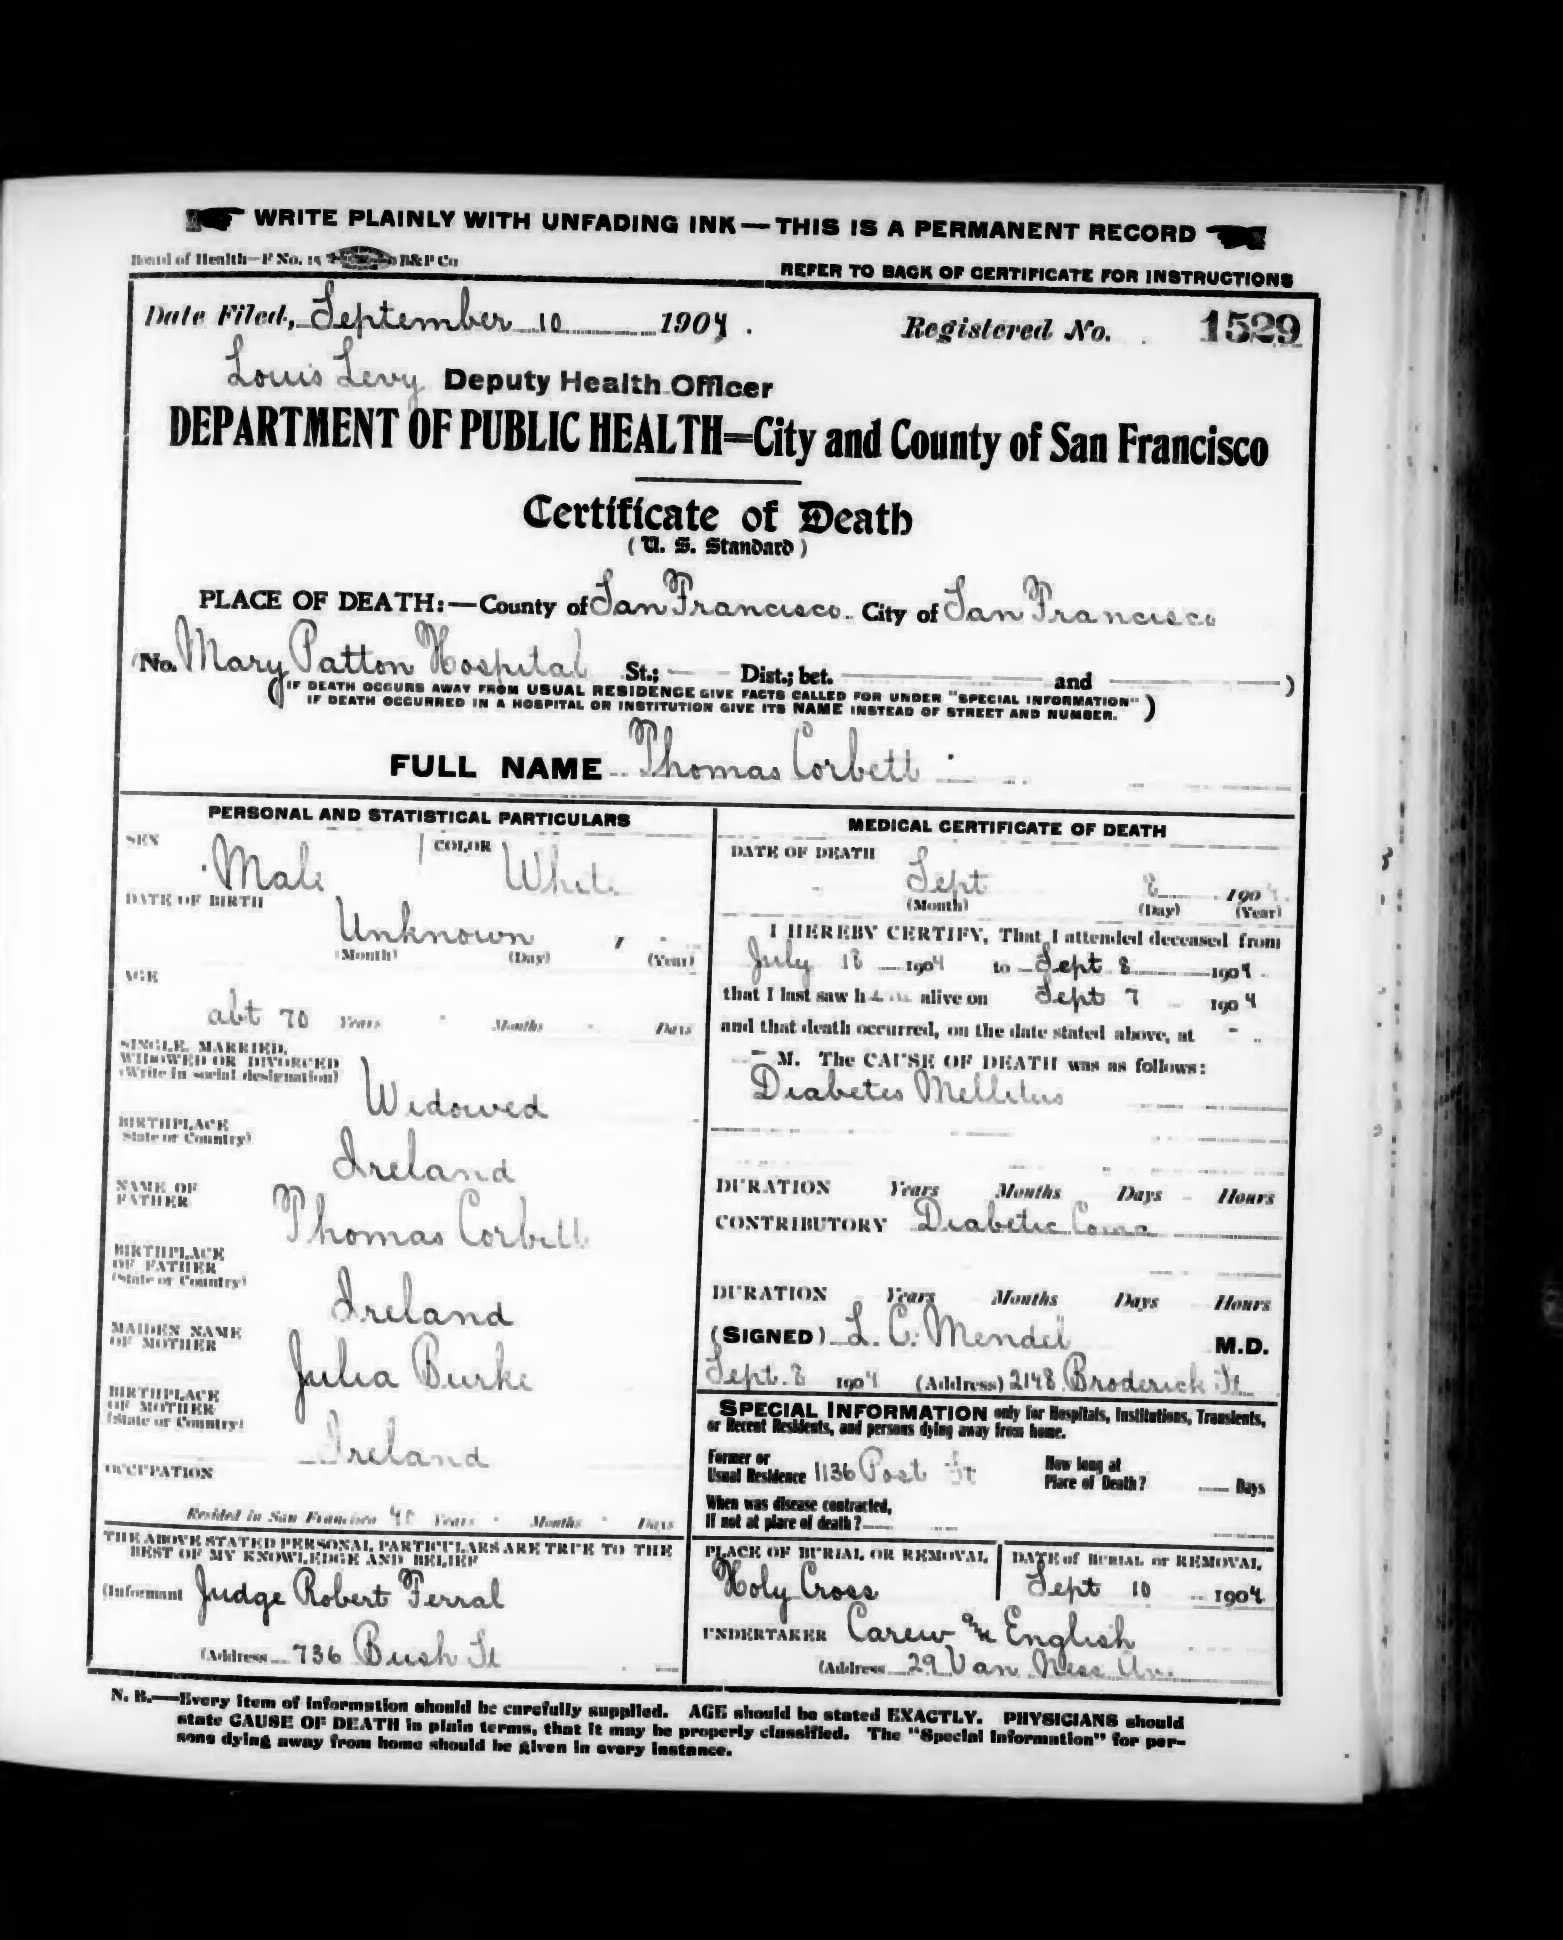 WRITE PLAINLY WITH UNFADING INK—THIS IS A PERMANENT RECORD
Board of Health—F No. 15 B&P Co
REFER TO BACK OF CERTIFICATE FOR INSTRUCTIONS
Date Filed, September 10 1904. Registered No. 1529
Louis Levy Deputy Health Officer
DEPARTMENT OF PUBLIC HEALTH=City and County of San Francisco
Certificate of Death
(U. S. Standard)
PLACE OF DEATH:—County of San Francisco. City of San Francisco
(No. Mary Patton Hospital St.; Dist.; bet. and )
(IF DEATH OCCURS AWAY FROM USUAL RESIDENCE GIVE FACTS CALLED FOR UNDER "SPECIAL INFORMATION"
IF DEATH OCCURRED IN A HOSPITAL OR INSTITUTION GIVE ITS NAME INSTEAD OF STREET AND NUMBER.)
FULL NAME Thomas Corbett
PERSONAL AND STATISTICAL PARTICULARS
SEX Male COLOR White
DATE OF BIRTH
Unknown
(Month) (Day) (Year)
AGE
abt 70 Years Months Days
SINGLE, MARRIED,
WIDOWED OR DIVORCED
(Write in social designation)
Widowed
BIRTHPLACE
State or Country)
Ireland
NAME OF
FATHER
Thomas Corbett
BIRTHPLACE
OF FATHER
(State or Country)
Ireland
MAIDEN NAME
OF MOTHER
Julia Burke
BIRTHPLACE
OF MOTHER
(State or Country)
Ireland
OCCUPATION
Resided in San Francisco 40 Years Months Days
THE ABOVE STATED PERSONAL PARTICULARS ARE TRUE TO THE
BEST OF MY KNOWLEDGE AND BELIEF
(Informant Judge Robert Ferral
(Address 736 Bush St
MEDICAL CERTIFICATE OF DEATH
DATE OF DEATH
Sept 8 1904
(Month) (Day) (Year)
I HEREBY CERTIFY, That I attended deceased from
July 18 1904 to Sept 8 1904.
that I last saw him alive on Sept 7 1904
and that death occurred, on the date stated above, at
M. The CAUSE OF DEATH was as follows:
Diabetes Mellitus
DURATION Years Months Days Hours
CONTRIBUTORY Diabetic Coma
DURATION Years Months Days Hours
(SIGNED) L. C. Mendel M.D.
Sept. 8 1904 (Address) 2148 Broderick St
SPECIAL INFORMATION only for Hospitals, Institutions, Transients,
or Recent Residents, and persons dying away from home.
Former or
Usual Residence 1136 Post St
How long at
Place of Death? Days
When was disease contracted,
If not at place of death?
PLACE OF BURIAL OR REMOVAL
Holy Cross
DATE of BURIAL or REMOVAL
Sept 10 1904
UNDERTAKER Carew & English
(Address 29 Van Ness Av.
N. B.—Every item of information should be carefully supplied. AGE should be stated EXACTLY. PHYSICIANS should
state CAUSE OF DEATH in plain terms, that it may be properly classified. The "Special Information" for per-
sons dying away from home should be given in every instance.